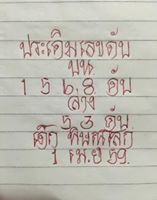 ประเดิมเลขดับ
บน
1 5 6 8 ดับ
ล่าง
5 3 ดับ
1 เม.ย 59.